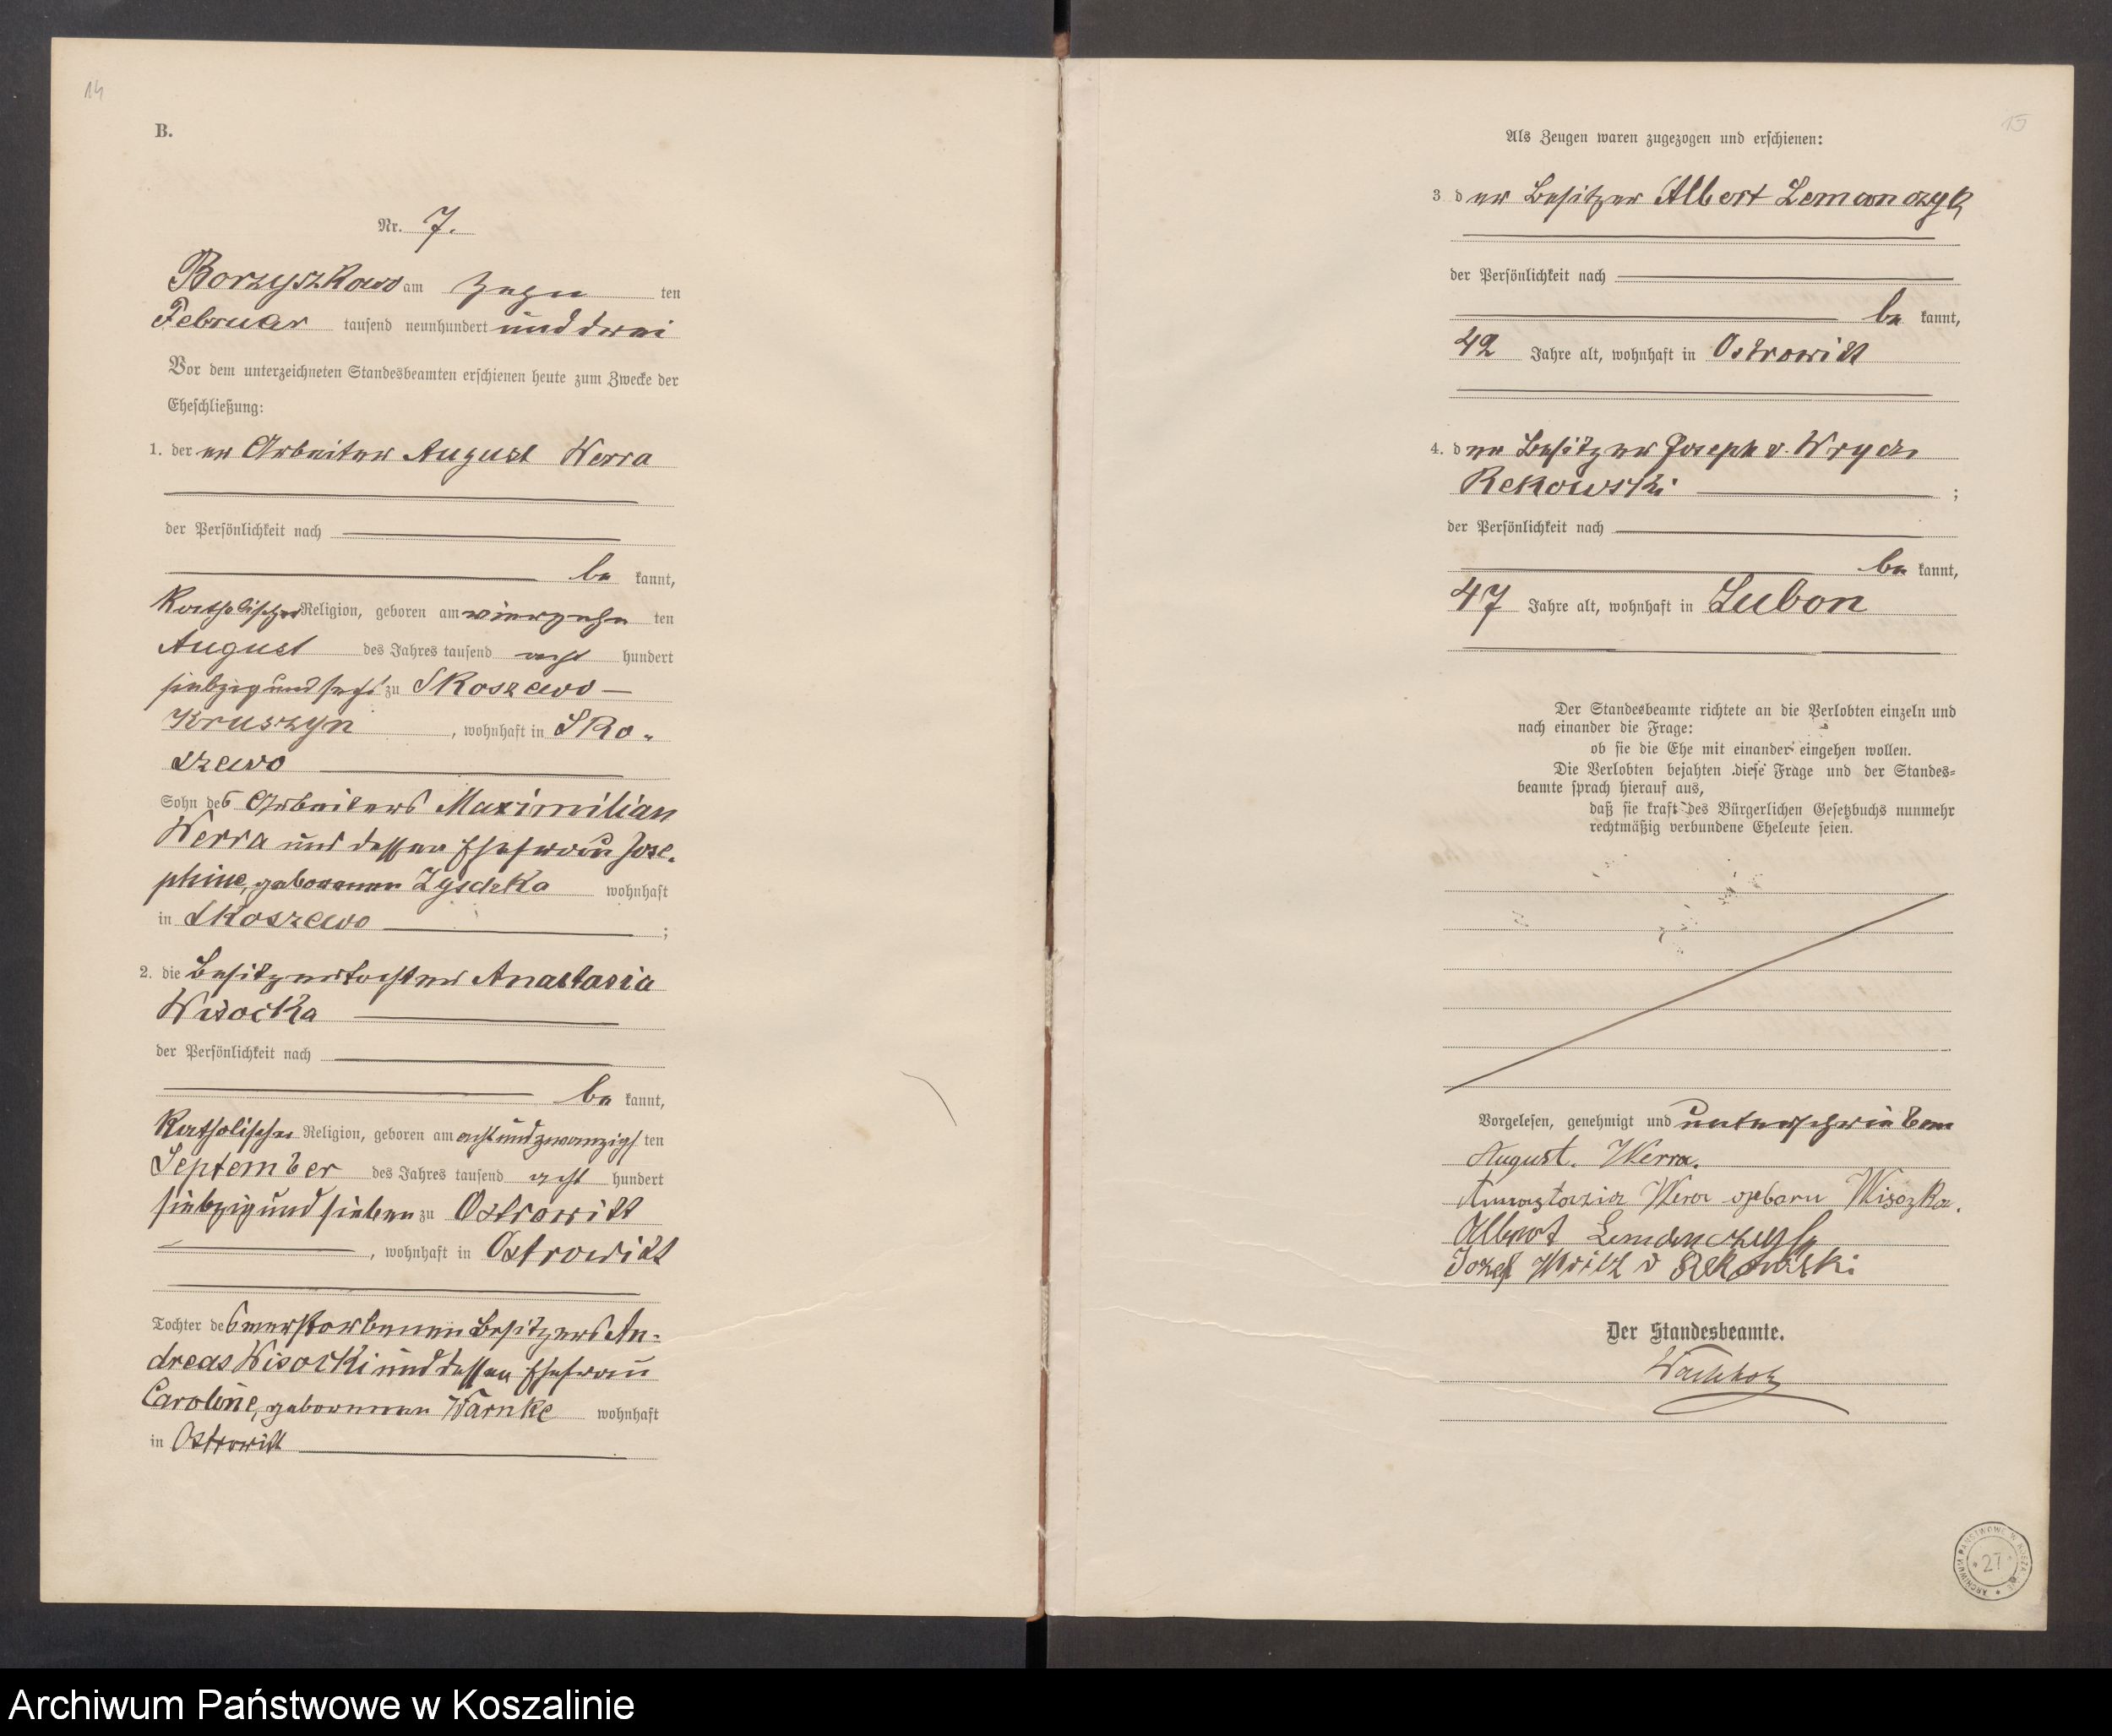 14
B.
Nr. 7.
Borzyszkowo am zehn ten
Februar tausend neunhundert und drei
Vor dem unterzeichneten Standesbeamten erschienen heute zum Zwecke der
Eheschließung:
1. der er Arbeiter August Werra
der Persönlichkeit nach
be kannt,
katholischer Religion, geboren am vierzehn ten
August des Jahres tausend acht hundert
siebzig und sechs zu Skoszewo —
Kruszyn, wohnhaft in Sko-
szewo
Sohn des Arbeiters Maximilian
Werra und dessen Ehefrau Jose-
phine, geborenen Zyschka wohnhaft
in Skoszewo ;
2. die Besitzertochter Anastasia
Wisocka
der Persönlichkeit nach
be kannt,
katholischer Religion, geboren am acht und zwanzigs ten
September des Jahres tausend acht hundert
siebzig und sieben zu Ostrowitt
, wohnhaft in Ostrowitt
Tochter des verstorbenen Besitzers An-
dreas Wisocki und dessen Ehefrau
Caroline, geborenen Warnke wohnhaft
in Ostrowitt
15
Als Zeugen waren zugezogen und erschienen:
3. der Besitzer Albert Lemanczyk
der Persönlichkeit nach
be kannt,
42 Jahre alt, wohnhaft in Ostrowitt
4. der Besitzer Joseph v. Wrycz
Rekowski ;
der Persönlichkeit nach
be kannt,
47 Jahre alt, wohnhaft in Lubon
Der Standesbeamte richtete an die Verlobten einzeln und
nach einander die Frage:
ob sie die Ehe mit einander eingehen wollen.
Die Verlobten bejahten diese Frage und der Standes-
beamte sprach hierauf aus,
daß sie kraft des Bürgerlichen Gesetzbuchs nunmehr
rechtmäßig verbundene Eheleute seien.
Vorgelesen, genehmigt und unterschrieben
August. Werra.
Anastazia Wera gebarn Wisozka.
Albert Lemanczyk
Jozef Writz v Rekowski
Der Standesbeamte.
Wachholz
ARCHIWUM PAŃSTWOWE W KOSZALINIE
27
Archiwum Państwowe w Koszalinie